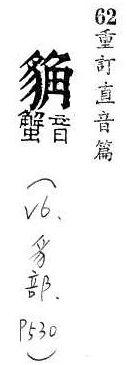 62重訂直音篇
音蟹
(v6. 豸部. P530)